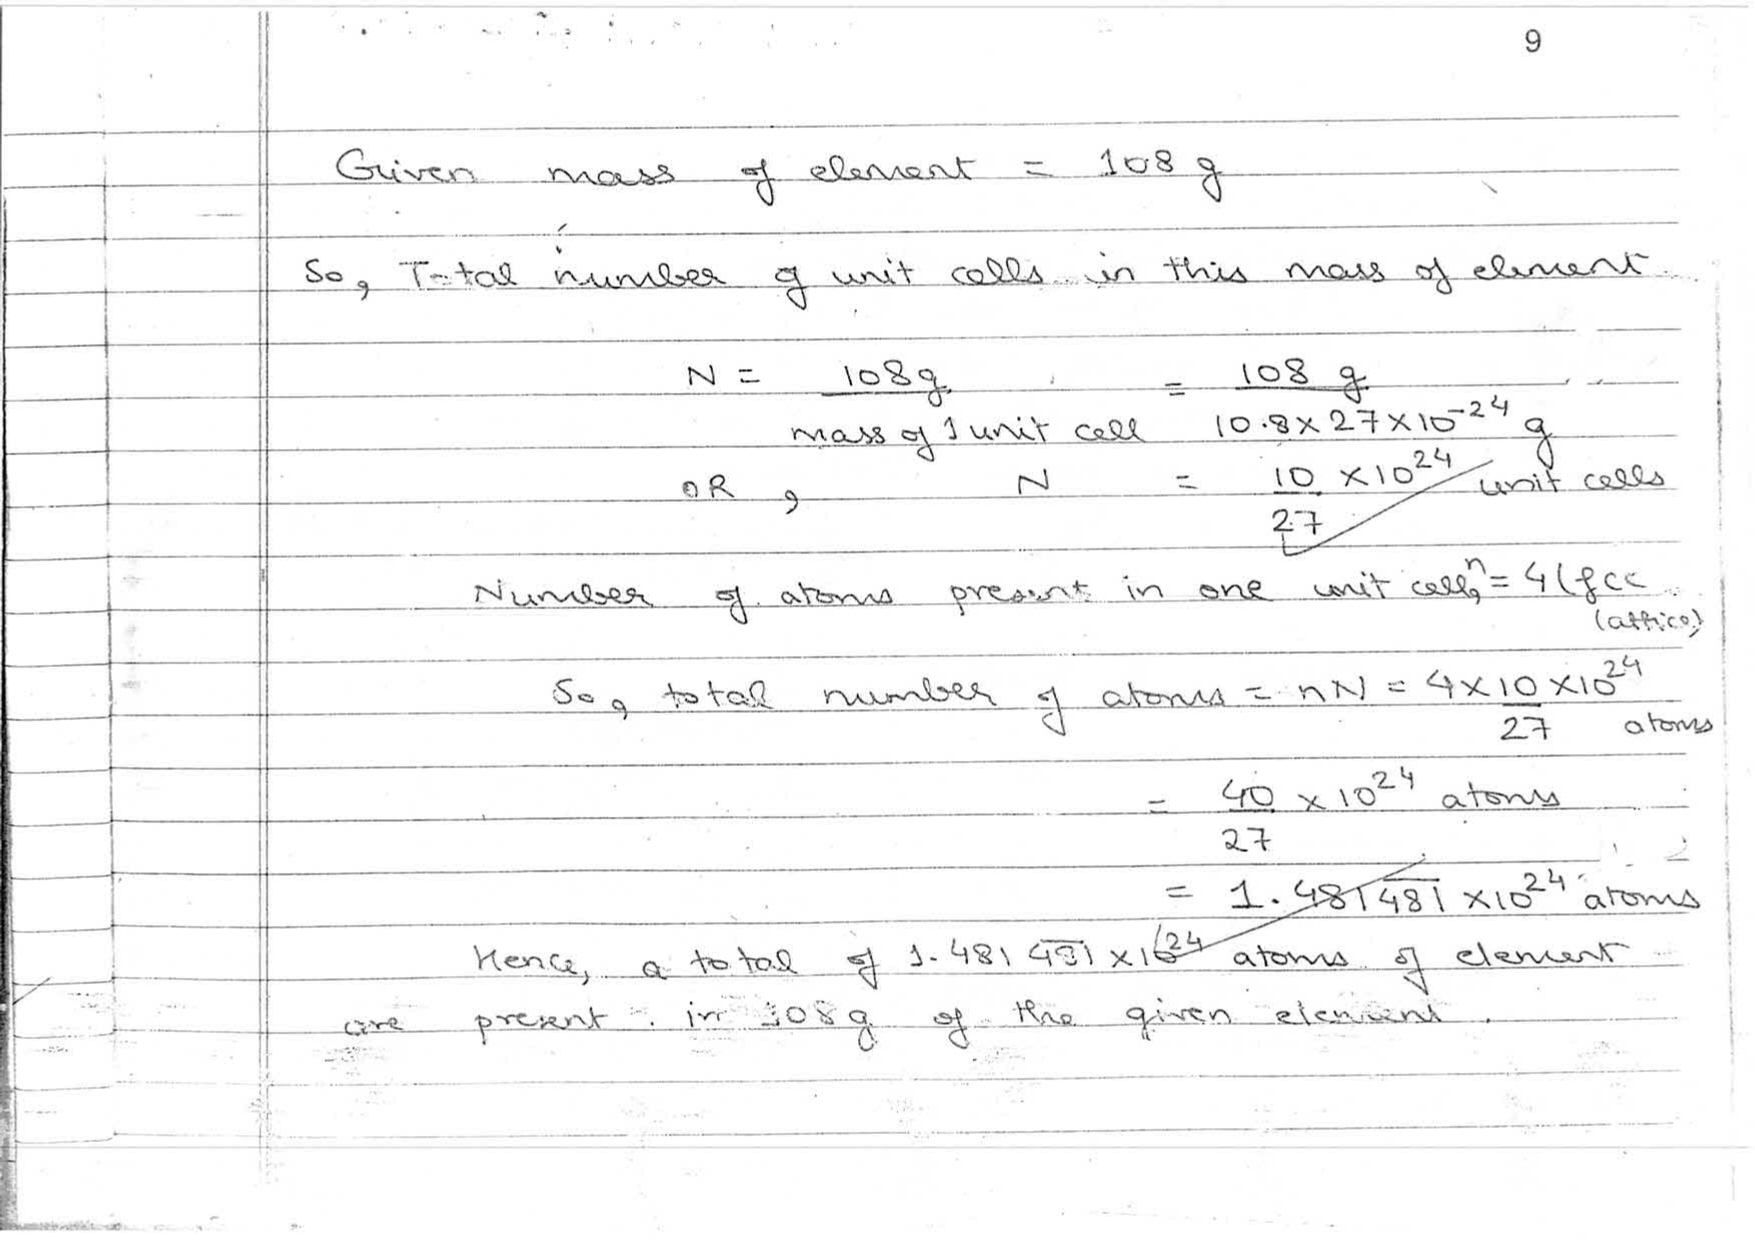 9
Given mass of element = 108 g
So, Total number of unit cells in this mass of element
N = 108g / mass of 1 unit cell = 108 g / 10.8 × 27 × 10^-24 g
OR, N = 10/27 × 10^24 unit cells
Number of atoms present in one unit cell, n = 4 (fcc lattice)
So, total number of atoms = nN = 4 × 10/27 × 10^24 atoms
= 40/27 × 10^24 atoms
= 1.481481 × 10^24 atoms
Hence, a total of 1.481481 × 10^24 atoms of element
are present in 108g of the given element.